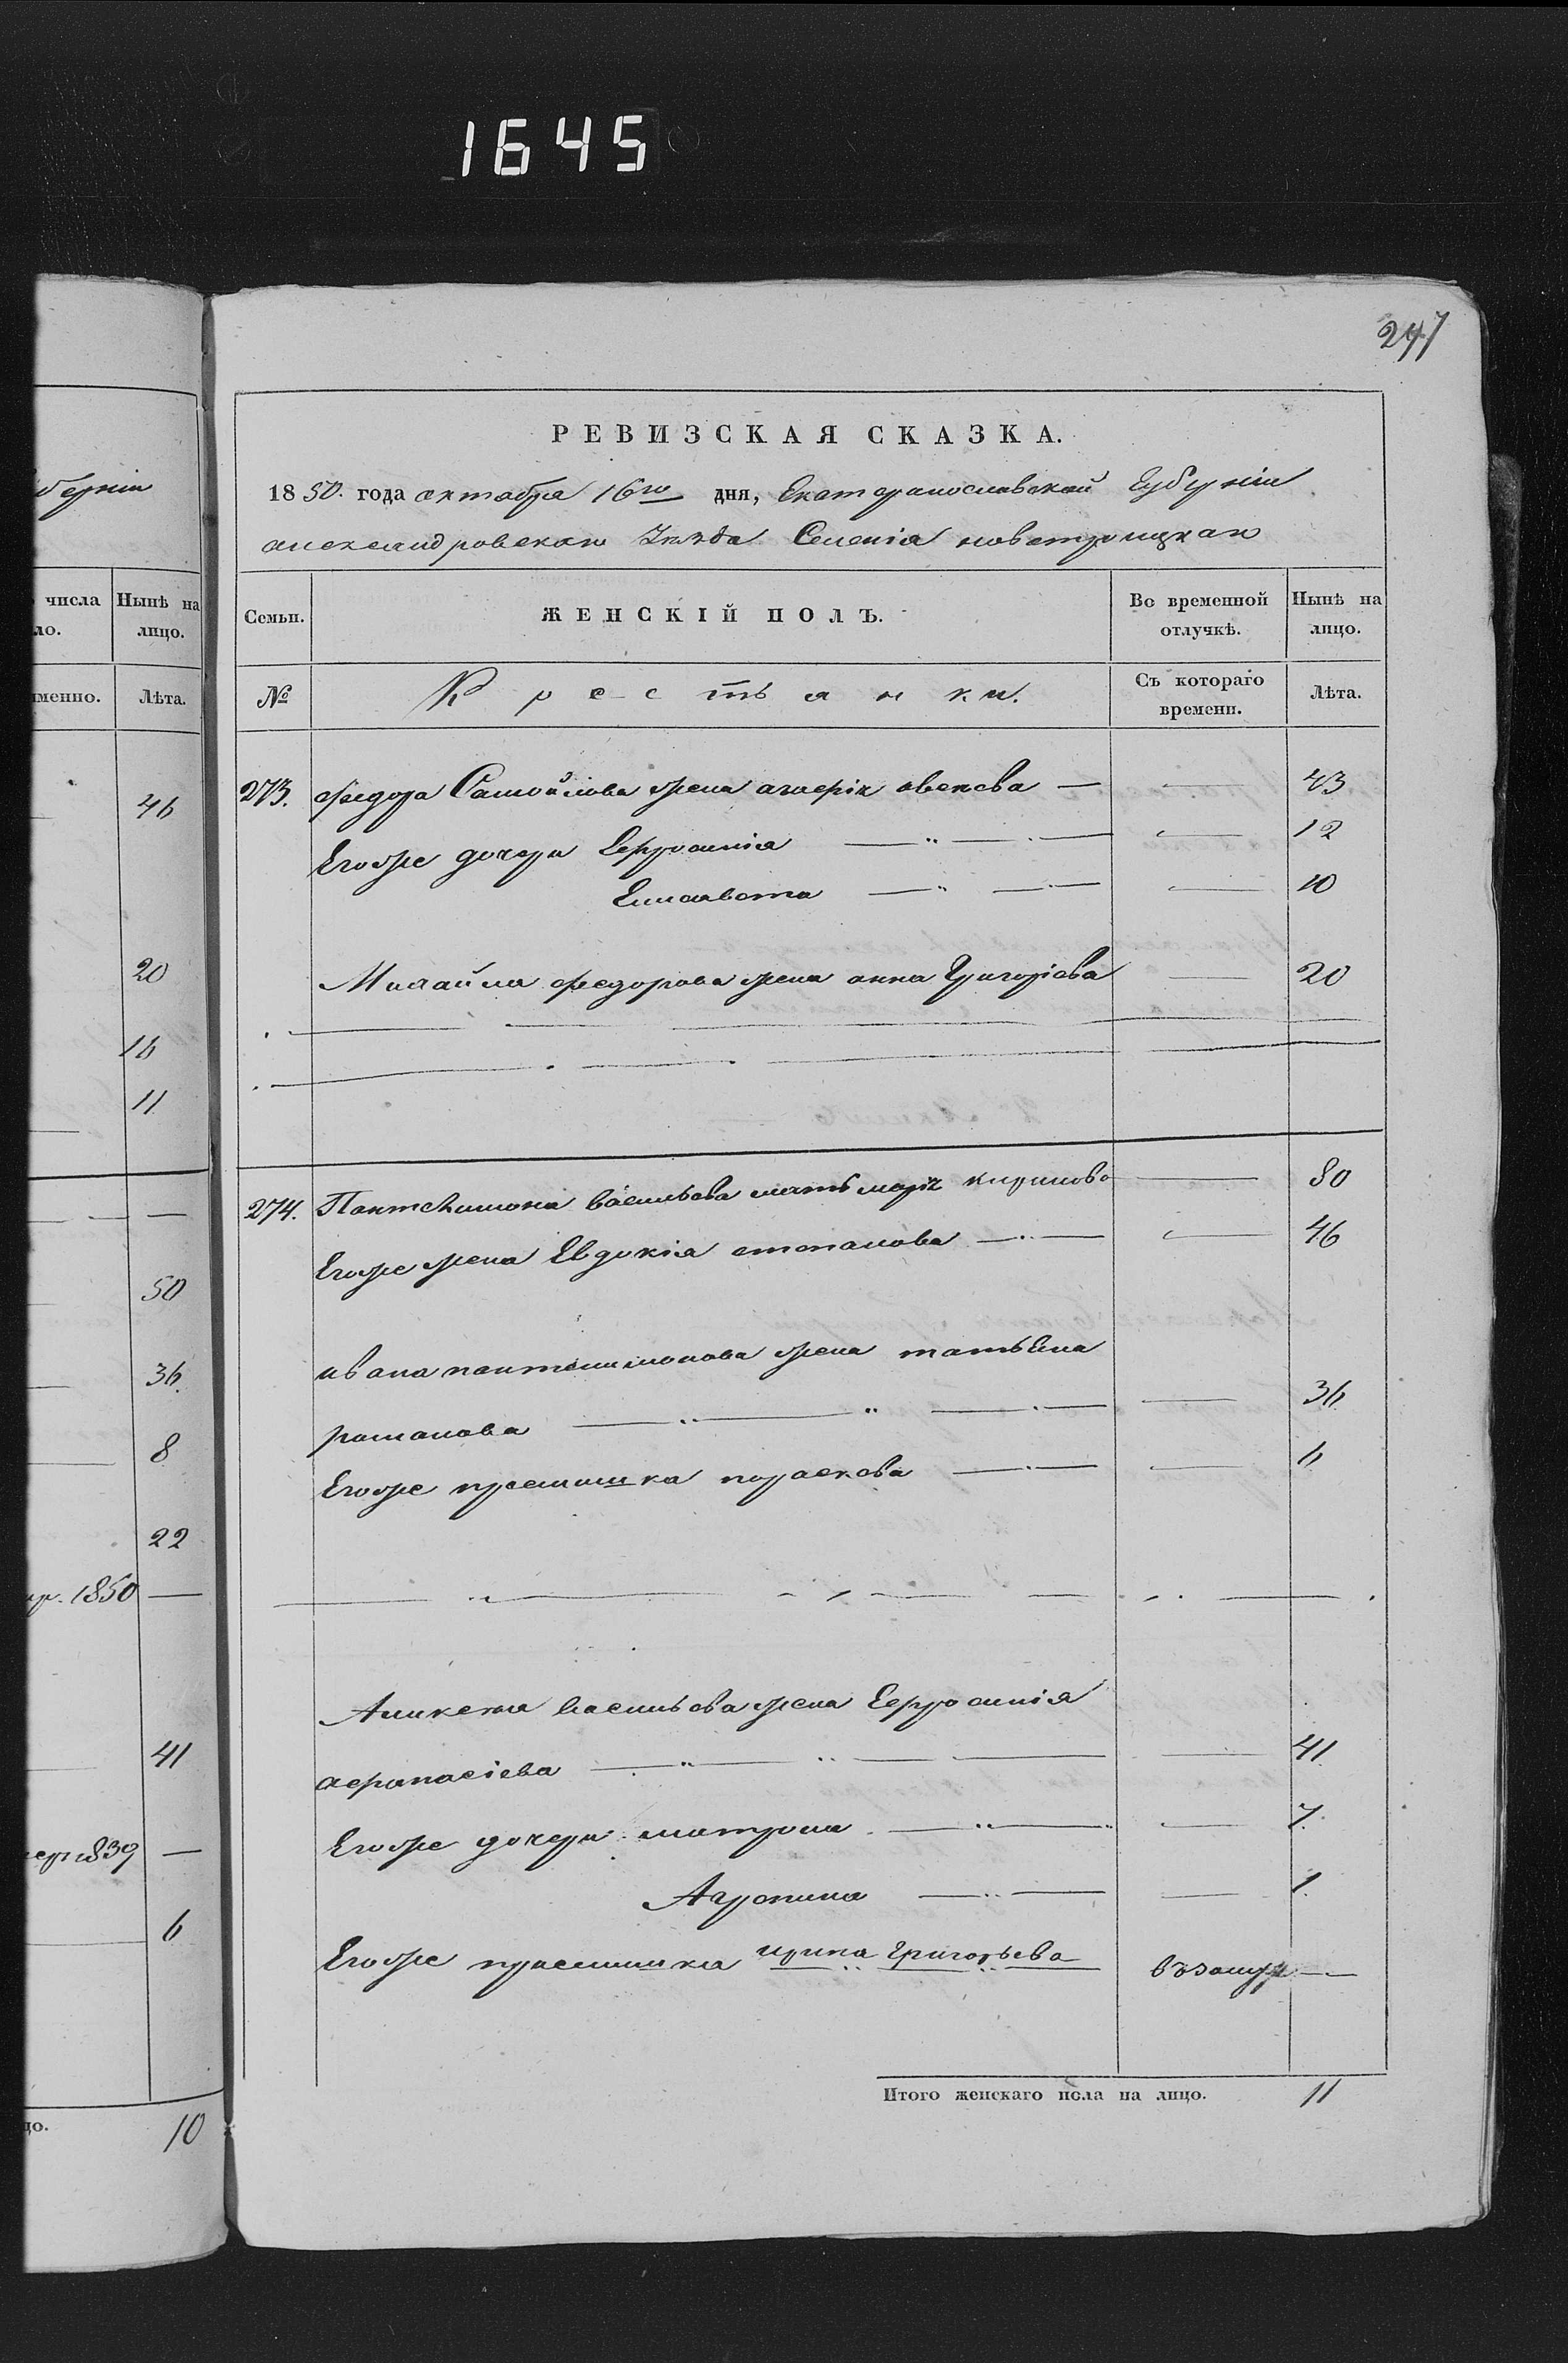 1645
247
РЕВИЗСКАЯ СКАЗКА.
1850. года октабря 16го дня, Екатеринославской Губерніи
александровскаго Уѣзда Селенія новотроицкаго
Семьи. ЖЕНСКІЙ ПОЛЪ. Во временной отлучкѣ. Нынѣ на лицо.
№ Крестьянки. Съ котораго времени. Лѣта.
273. федора Самойлова жена — 43
Егоже дочери Ефросинія — 12
Елисавета — 10
Михайла федорова жена анна Григоріева — 20
274. Пантелимона васильева мать марія кирилова — 80
Егоже жена Евдокія степанова — 46
ивана пантелимонова жена татьяна
романова — 36
Егоже племянка парасковья — 6
Аникея васильева жена Ефросинія
афанасіева — 41
Егоже дочери матрона — 7.
Агрепина — 1.
Егоже племянка ирина Григорьева въ замуж —
Итого женскаго пола на лицо. 11
берніи
числа
ло.
Нынѣ на
лицо.
именно. Лѣта.
46
20
16
11
—
50
36.
8
22
1850 —
41
1839 —
6
10